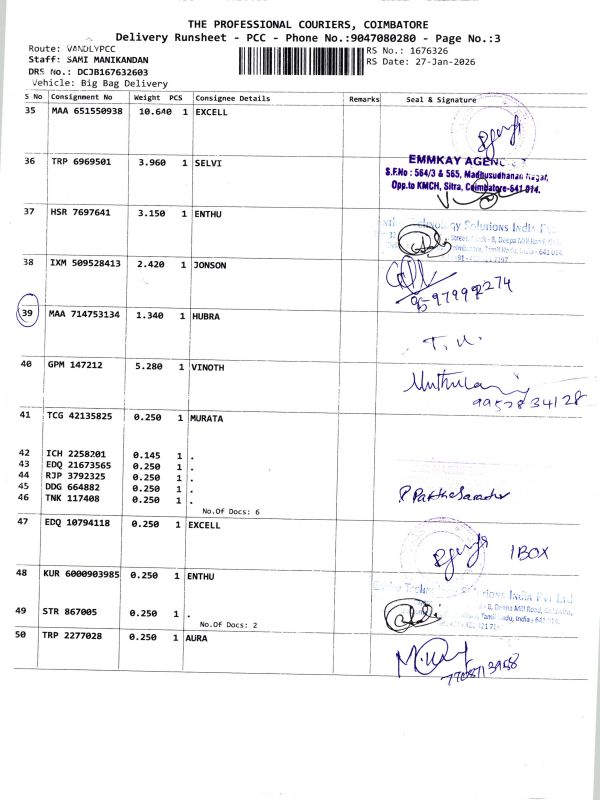 THE PROFESSIONAL COURIERS, COIMBATORE
Delivery Runsheet - PCC - Phone No.:9047080280 - Page No.:3
Route: VANDLYPCC
RS No.: 1676326
Staff: SAMI MANIKANDAN
RS Date: 27-Jan-2026
DRS No.: DCJB167632603
Vehicle: Big Bag Delivery
S No Consignment No Weight PCS Consignee Details Remarks Seal & Signature
35 MAA 651550938 10.640 1 EXCELL
36 TRP 6969501 3.960 1 SELVI
EMMKAY
S.F.No : 564/3 & 565, Madhusudhanan Nagar,
Opp.to KMCH, Sitra, Coimbatore-641 014.
37 HSR 7697641 3.150 1 ENTHU
Technology Solutions India Pvt
Street, Block - B, Deepa Mill Road,
Coimbatore, Tamil Nadu, India - 641 014
38 IXM 509528413 2.420 1 JONSON
39 MAA 714753134 1.340 1 HUBRA
T. U.
40 GPM 147212 5.280 1 VINOTH
9952834128
41 TCG 42135825 0.250 1 MURATA
42 ICH 2258201 0.145 1 .
43 EDQ 21673565 0.250 1 .
44 RJP 3792325 0.250 1 .
45 DDG 664882 0.250 1 .
46 TNK 117408 0.250 1 .
No.Of Docs: 6
47 EDQ 10794118 0.250 1 EXCELL
1 BOX
48 KUR 6000903985 0.250 1 ENTHU
India Pvt Ltd
- B, Deepa Mill Road,
Tamil Nadu, India - 641 014.
49 STR 867005 0.250 1 .
No.Of Docs: 2
50 TRP 2277028 0.250 1 AURA
7708713958